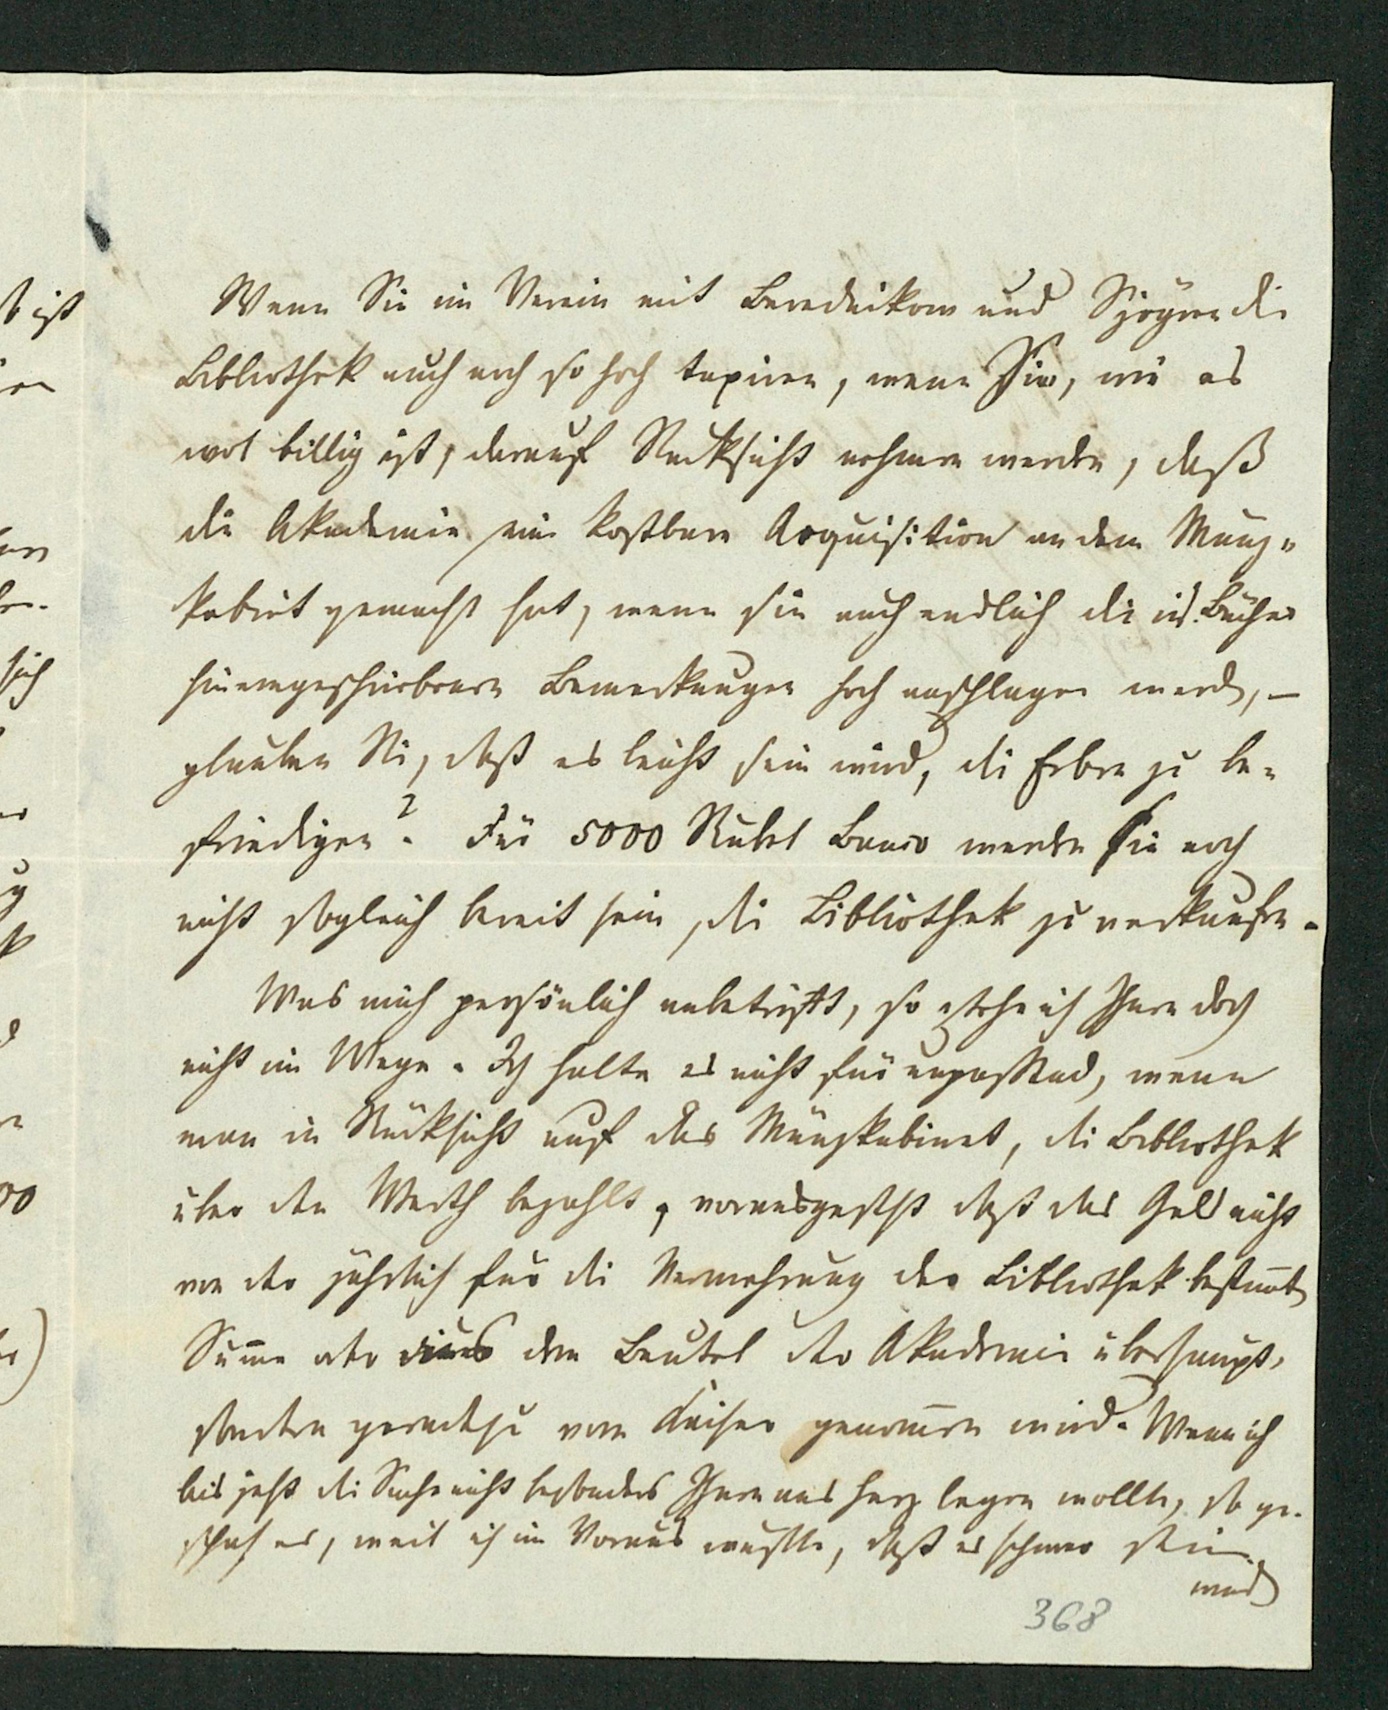 Wenn Sie im Verein mit Berednikow und Sjögren die
Bibliothek auch noch so hoch taxiren, wenn Sie, wie es
wol billig ist, darauf Rücksicht nehmen werden, daß
die Akademie eine kostbare Acquisition an dem Münz-
kabinet gemacht hat, wenn sie auch endlich die in d. Bücher
hineingeschriebenen Bemerkungen hoch anschlagen werden, –
glauben Sie, daß es leicht sein wird, die Erben zu be-
friedigen? Für 5000 Rubel Banco werden sie noch
nicht sogleich bereit sein, die Bibliothek zu verkaufen.
Was mich persönlich anbetrifft, so stehe ich Ihnen doch
nicht im Wege. Ich halte es nicht für unpassend, wenn
man in Rücksicht auf das Münzkabinet, die Bibliothek
über den Werth bezahlt, vorausgesetzt daß das Geld nicht
von der jährlich für die Vermehrung der Bibliothek bestimmten
Summe oder aus dem Beutel der Akademie überhaupt,
sondern geradezu vom Kaiser genommen wird. Wenn ich
bis jetzt die Sache nicht besonders Ihnen ans Herz legen wollte, so ge-
schah es, weil ich im Voraus wußte, daß es schwer sein
wird
368